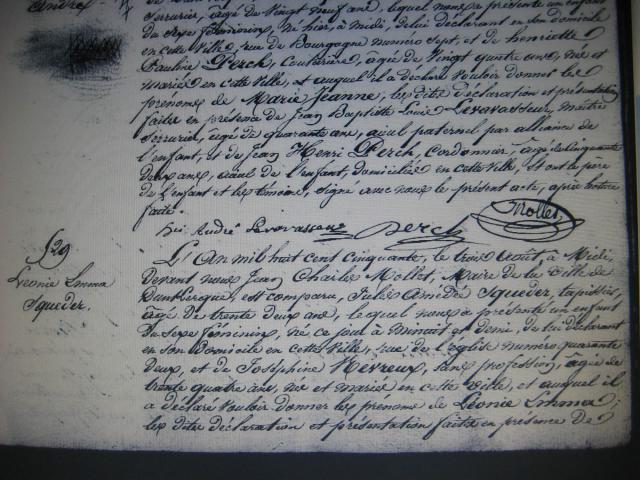 Serrurier, agé de Vingt neuf ans, lequel nous a présenté un enfant
du Sexe féminin, né hier, à midi, de lui déclarant en son domicile
en cette Ville, rue de Bourgogne numéro Sept, et de henriette
Pauline Perch, Couturière, agée de Vingt quatre ans, née et
mariée en cette Ville, et auquel il a déclaré vouloir donner les
prénoms de Marie Jeanne; les dite déclaration et présentation
faites en présence de Jean Baptiste Louis Levavasseur, maitre
Serrurier, agé de quarante ans, aïeul paternel par alliance de
l'enfant, et de Jean Henri Perch, Cordonnier, agé de Cinquante
Deux ans, aïeul de l'enfant, domiciliés en cette Ville, Et ont le père
de l'enfant et les témoins, signé avec nous le présent acte, après lecture
faite.
André Levavasseur Perch Mollet
529
Leonie Emma
Squeder.
L'An mil huit cent Cinquante, le trois Août, à Midi,
Devant nous Jean Charles Mollet, Maire de la Ville de
Dunkerque, est comparu, Jules Amédé Squeder, tapissier,
agé de trente deux ans, lequel nous a présenté un enfant
du Sexe féminin, né ce jour à Minuit et demi, de lui déclarant
en son Domicile en cette Ville, rue de l'église numéro quarante
deux, et de Joséphine Nevreux, sans profession, agée de
trente quatre ans, née et mariée en cette Ville, et auquel il
a déclaré vouloir donner les prénoms de Léonie Emma;
les dite déclaration et présentation faites en présence de